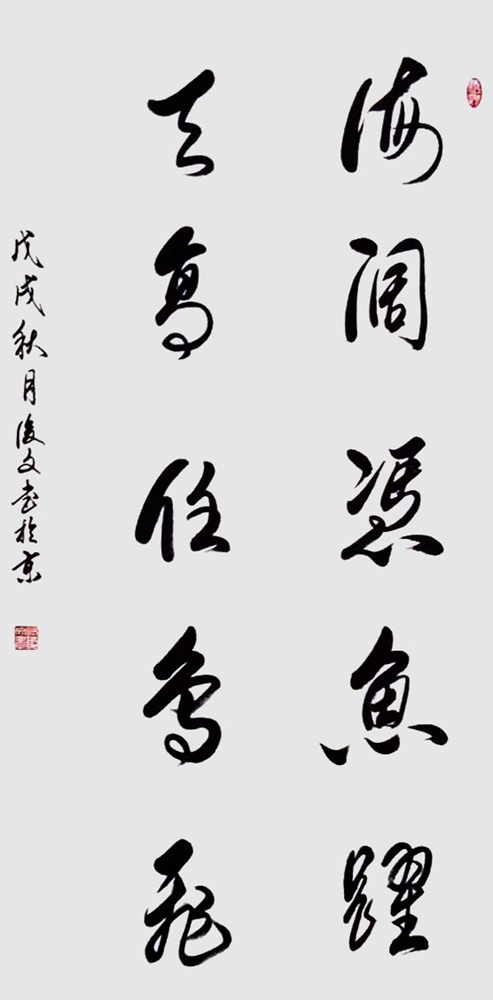 海阔凭鱼跃
天高任鸟飞
戊戌秋月俊文书于京